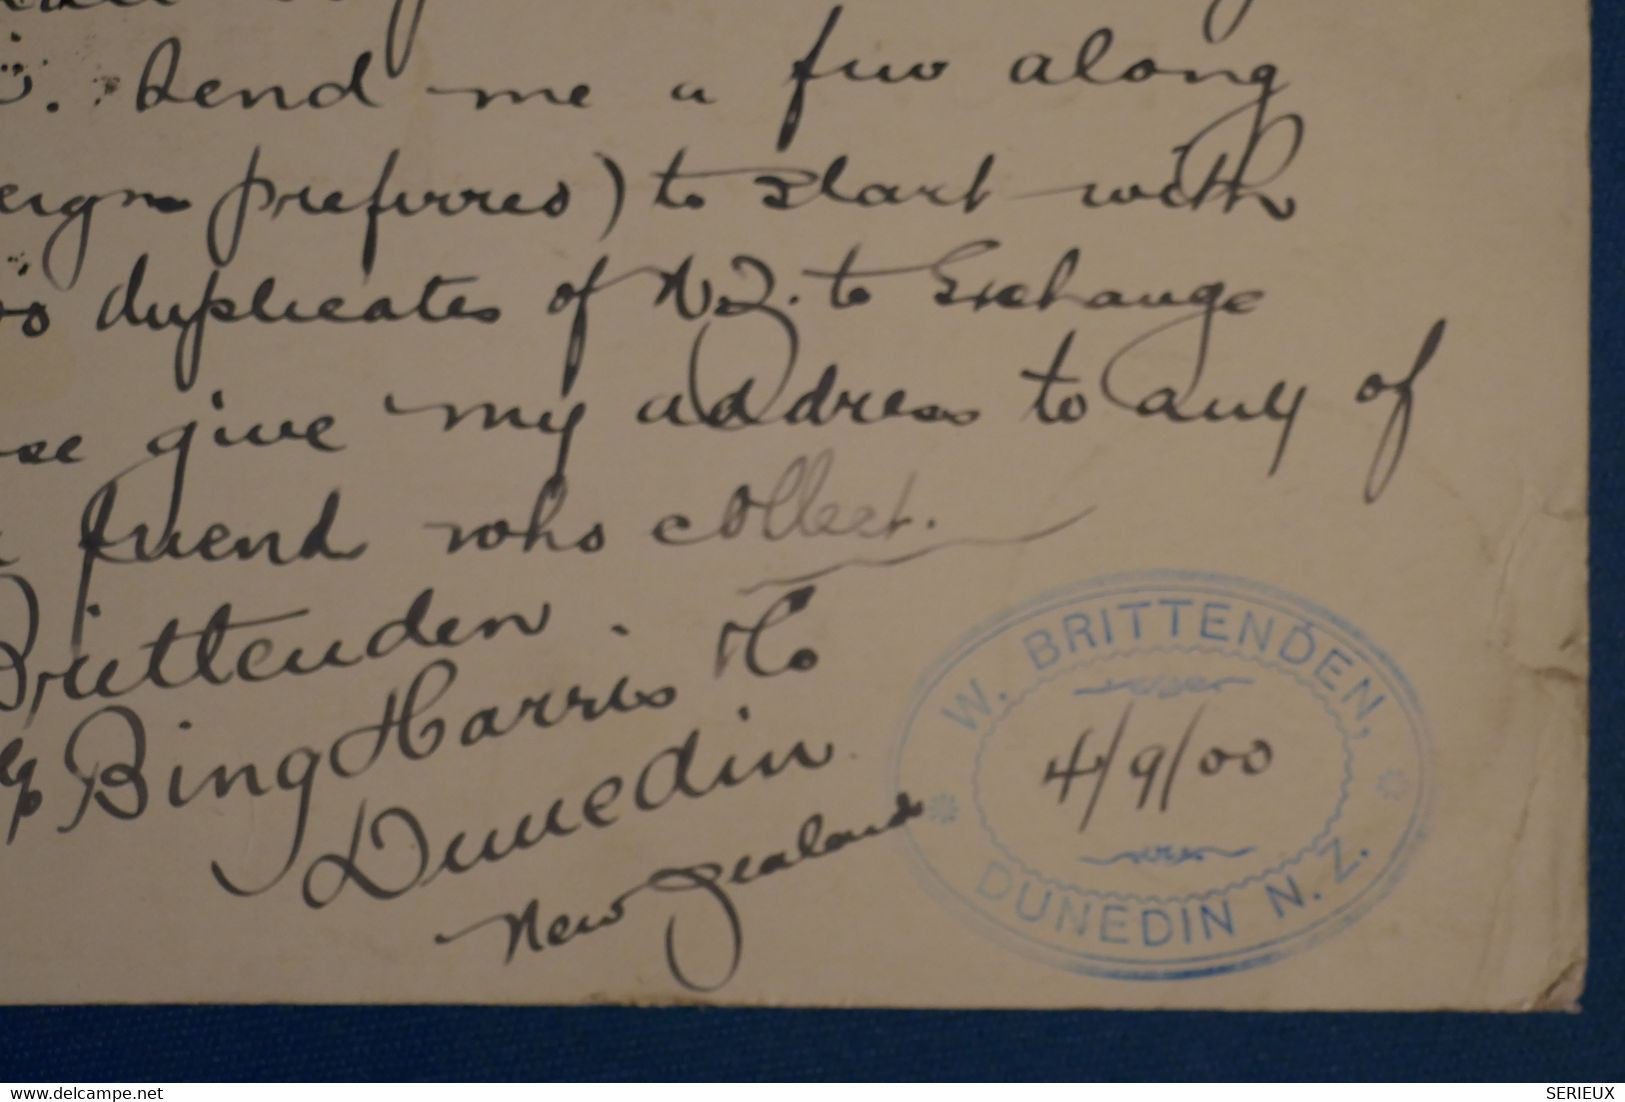 . Send me a few along
eign preferred) to start with
duplicates of N.Z. to Exchange
se give my address to any of
friend who collect.
Brittenden.
c/o Bing Harris & Co
Dunedin
New Zealand
W. BRITTENDEN,
4/9/00
DUNEDIN N.Z.
delcampe.net
SERIEUX